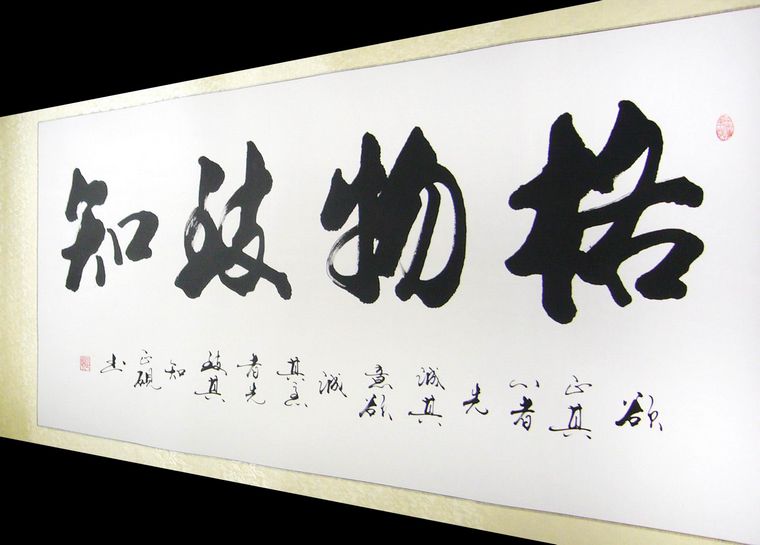 格物致知
欲正其心者先誠其意欲誠其意者先致其知 正硯書